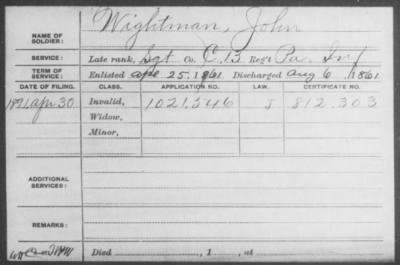 NAME OF SOLDIER: Wightman, John
SERVICE: Late rank, Sgt Co. C, 13 Reg't Pa. Inf
TERM OF SERVICE: Enlisted Apr 25, 1861 Discharged Aug 6, 1861
DATE OF FILING. CLASS. APPLICATION NO. LAW. CERTIFICATE NO.
1891 Apr 30 Invalid, 1021,546 J 812.303
Widow,
Minor,
ADDITIONAL SERVICES:
REMARKS:
Died , 1 , at